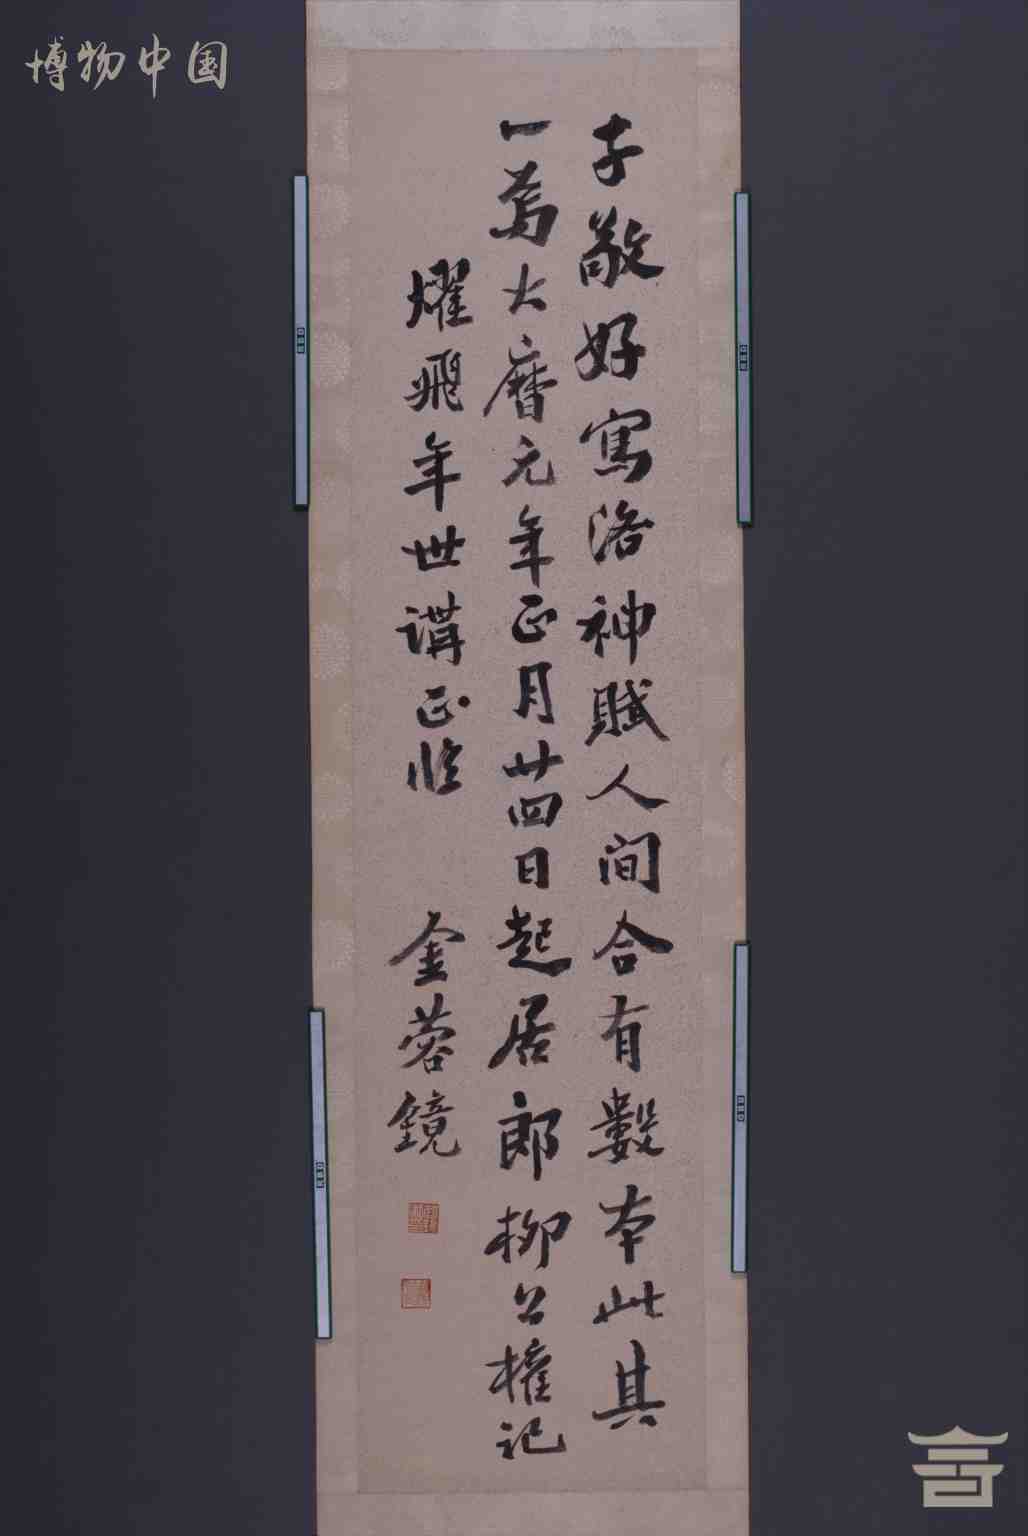 博物中国
子敬好寫洛神賦人间合有數本此其
一焉大曆元年正月廿四日起居郎柳公權記
燿飛年世講正臨 金蓉鏡